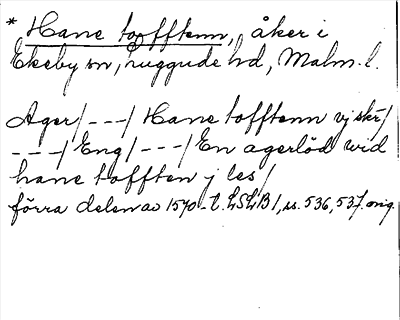 * Hane tofftenn, åker i
Ekeby sn, Luggude hd, Malm. l.
Ager/---/ Hane tofftenn vj skr/
---/ Eng/---/ En agerlöd wid
hane tofften j les/
förra delen av 1570-t. LSLB 1, ss. 536, 537. orig.